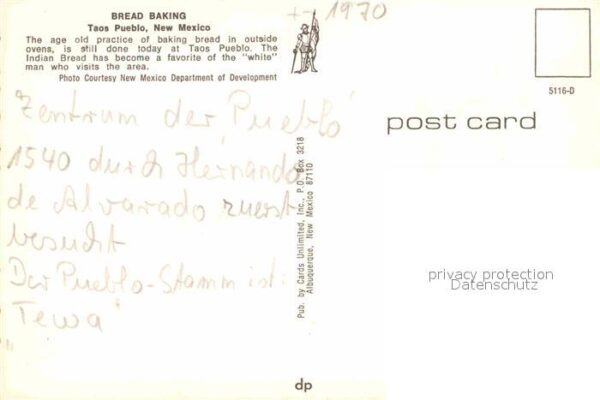 BREAD BAKING
Taos Pueblo, New Mexico
The age old practice of baking bread in outside
ovens, is still done today at Taos Pueblo. The
Indian Bread has become a favorite of the "white"
man who visits the area.
Photo Courtesy New Mexico Department of Development
+- 1970
5116-D
post card
Zentrum der 'Pueblo'
1540 durch Hernando
de Alvarado zuerst
besucht
Der Pueblo-Stamm ist:
"Tewa"
Pub. by Cards Unlimited, Inc., P.O. Box 3218
Albuquerque, New Mexico 87110
privacy protection
Datenschutz
dp